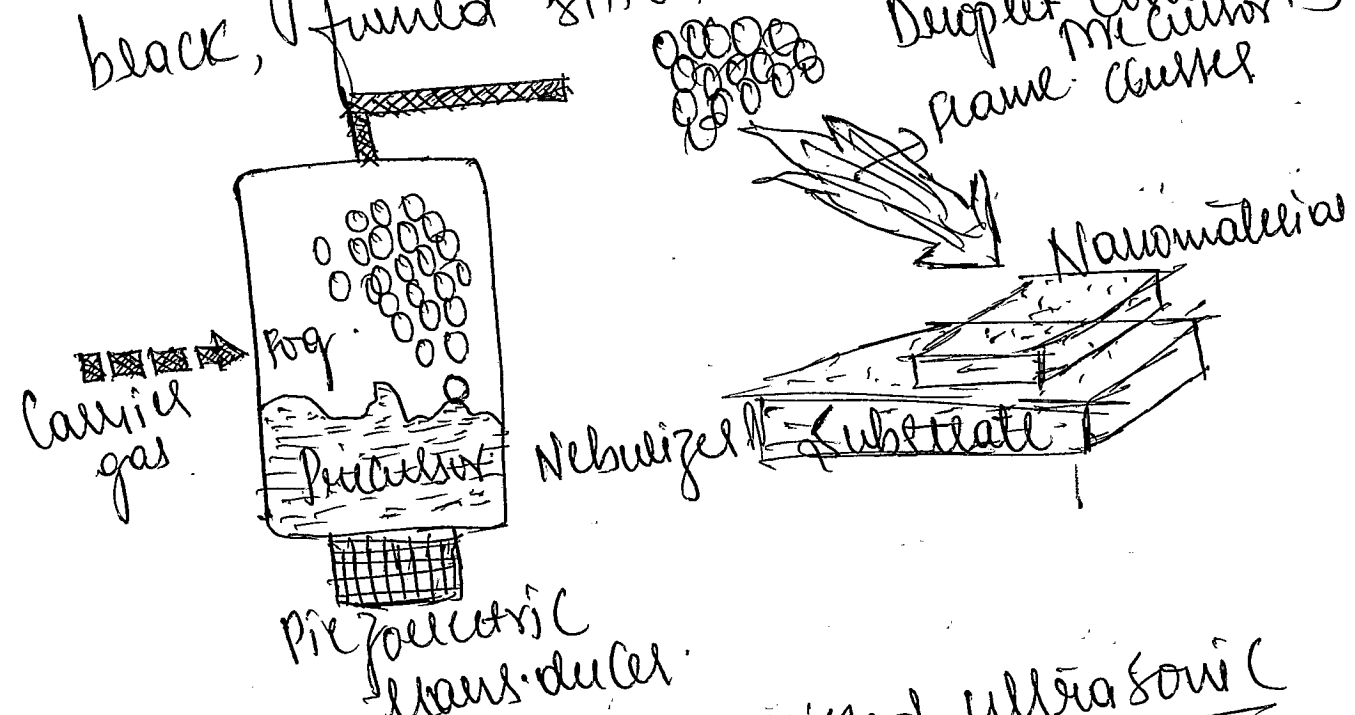 black, fumed
Droplet
Flame
Nanomaterial
Fog
Carrier
gas
Precursor
Nebulizer
Substrate
Piezoelectric
transducer
ultrasonic